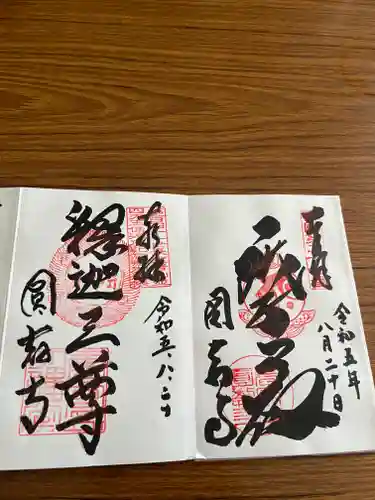 奉拝
令和五年
八月二十日
圓教寺
奉拝
令和五、八、二十
釋迦三尊
圓教寺